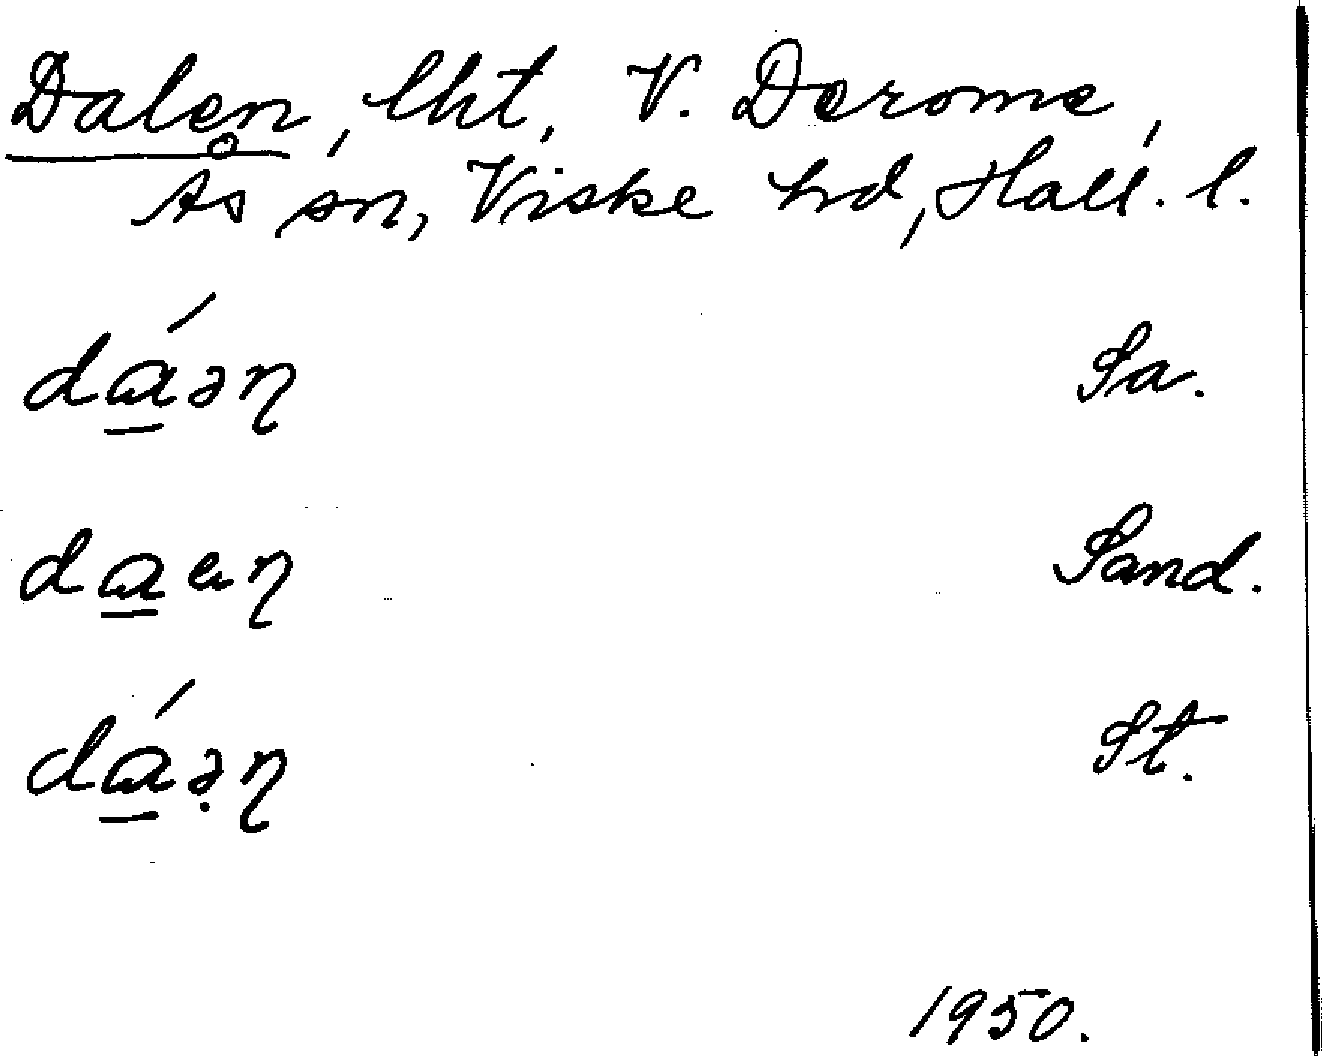 Dalen, lht, V. Derome,
Ås sn, Viske hd, Hall. l.
dɑ̱́əɳ Sa.
dɑ̱ eɳ Sand.
dɑ̱́ə̣ɳ St.
1950.